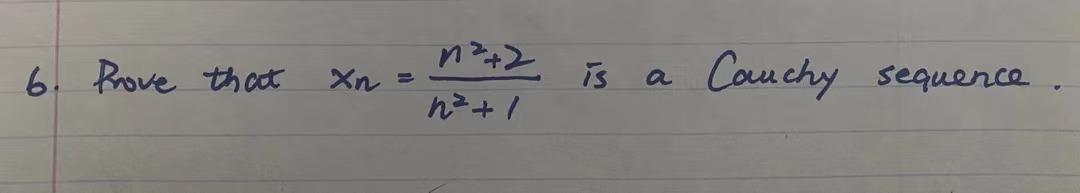 6. Prove that xn = \frac{n²+2}{n²+1} is a Cauchy sequence.